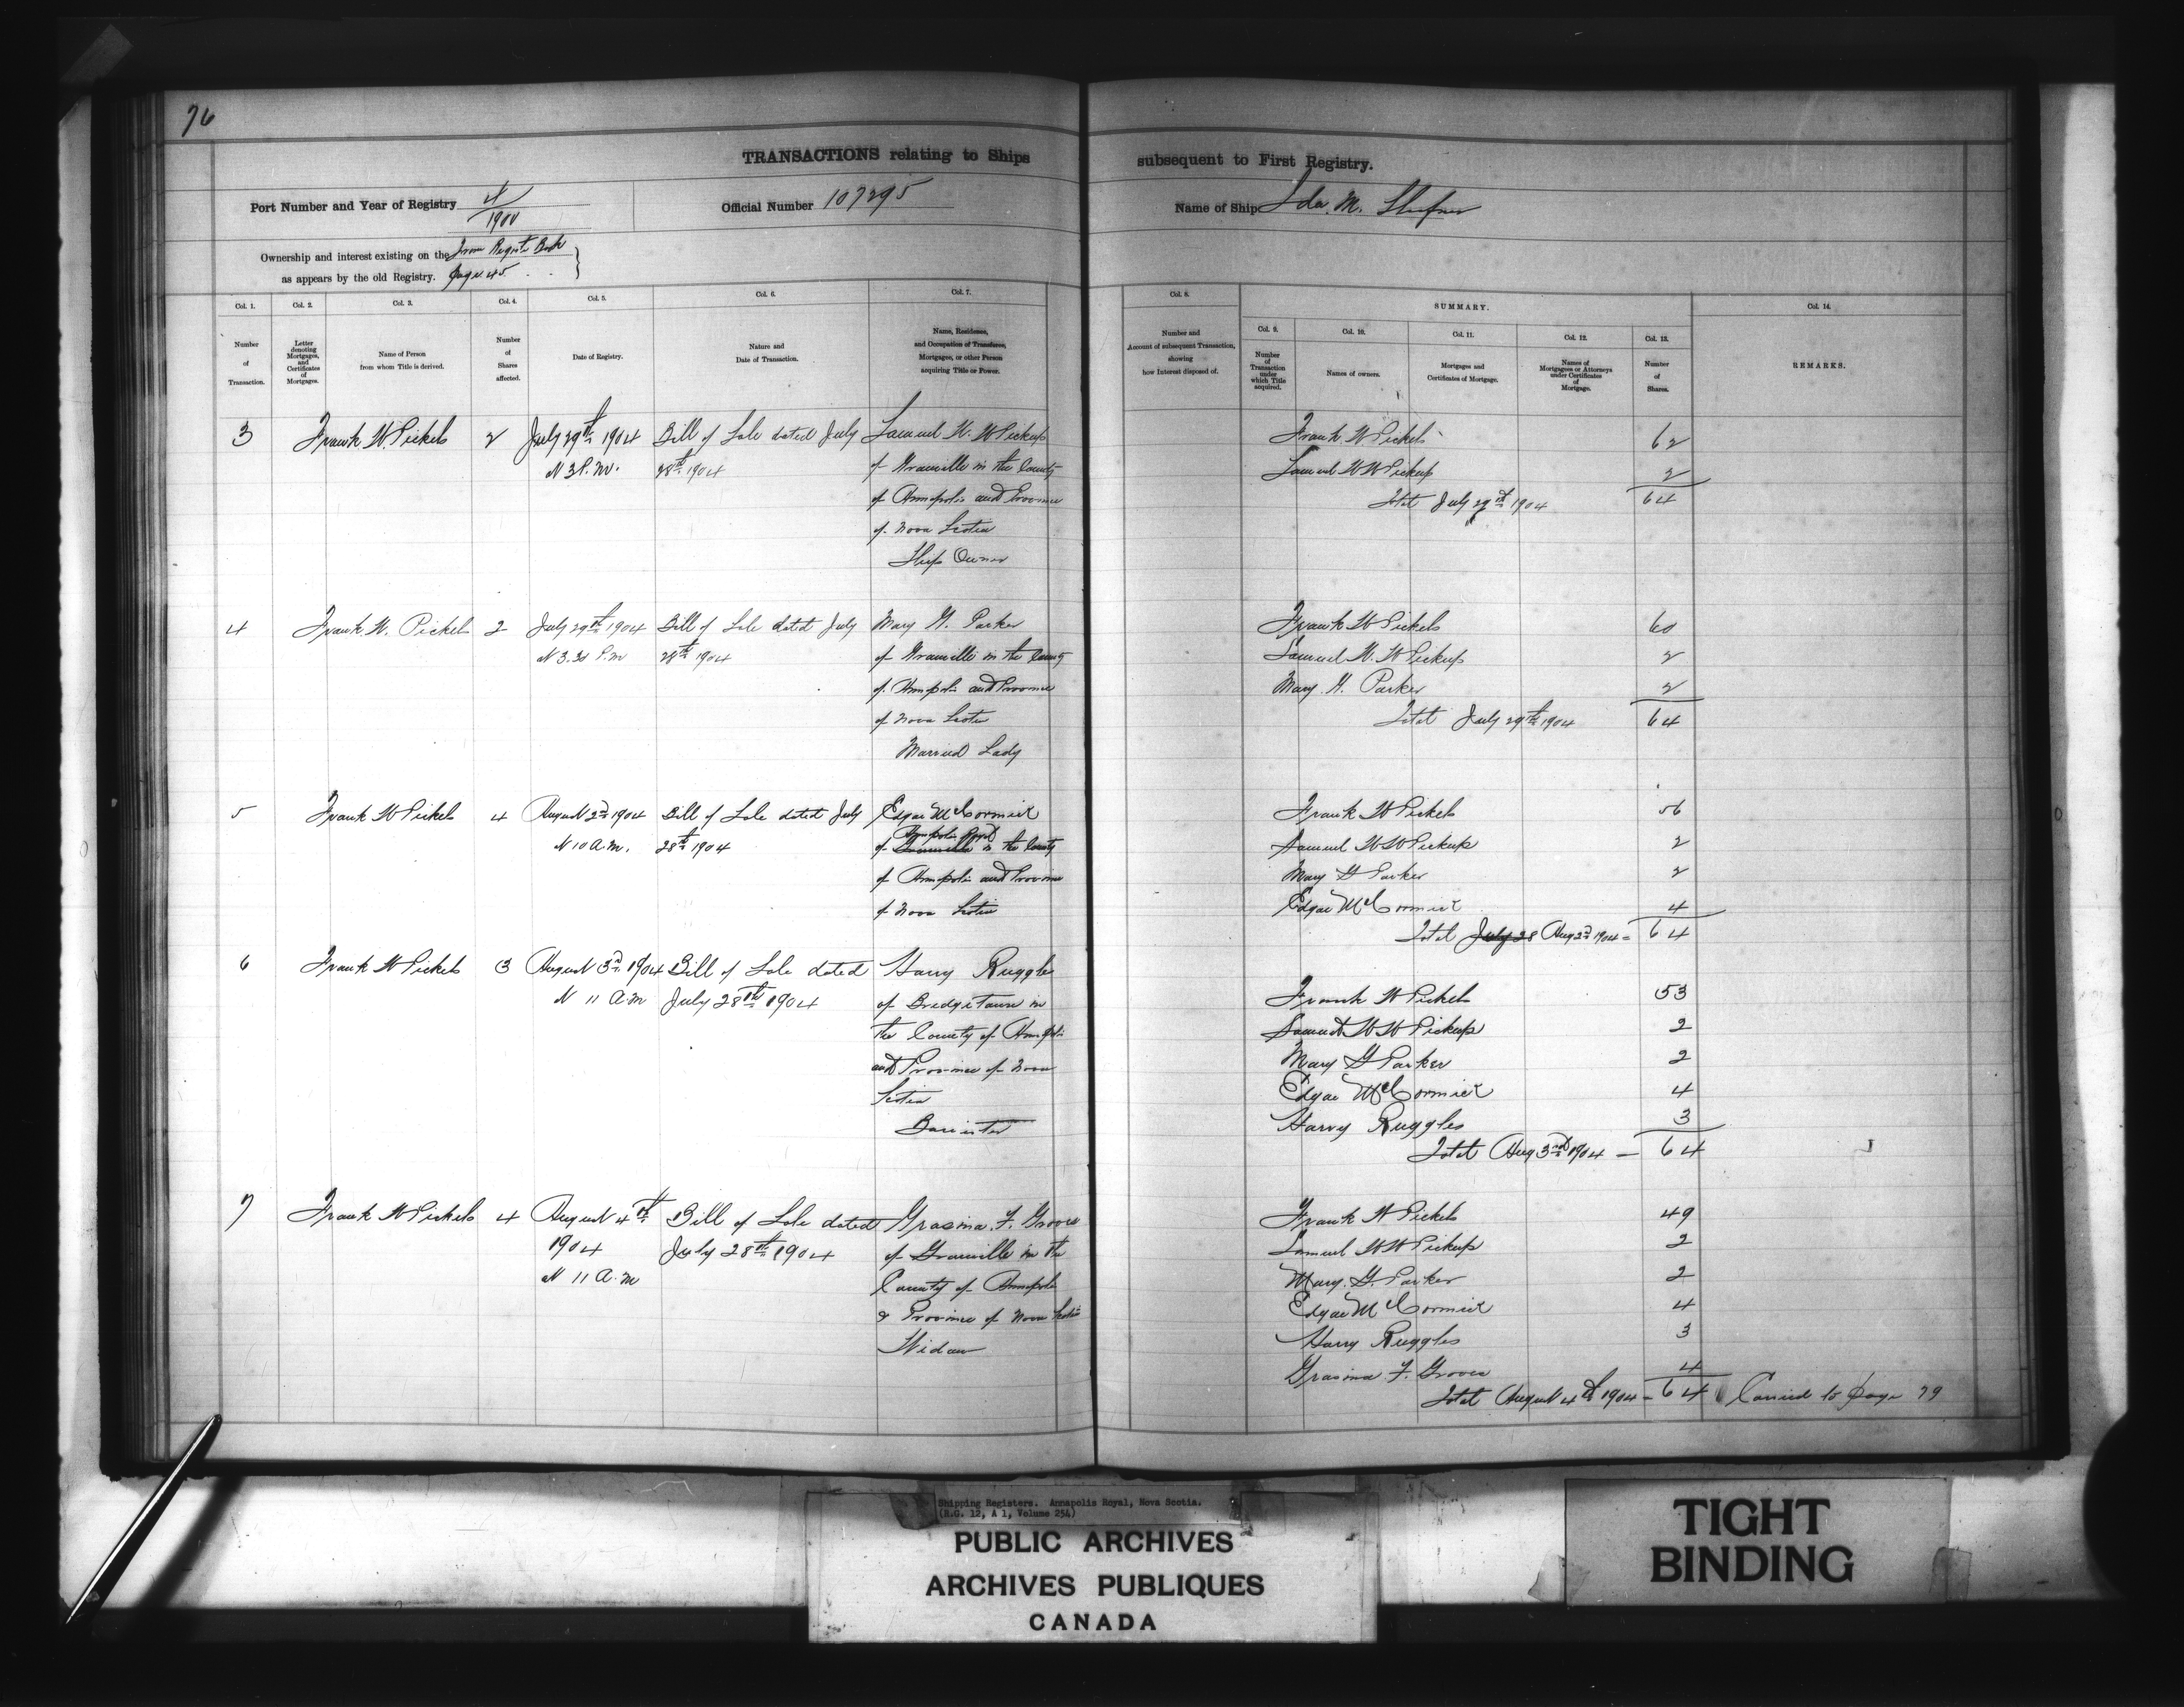 76
TRANSACTIONS relating to Ships subsequent to First Registry.
Port Number and Year of Registry 4/1900
Official Number 107295
Name of Ship Ida M. Shafner
Ownership and interest existing on the From Registr Book
as appears by the old Registry. page 45
Col. 1. Col. 2. Col. 3. Col. 4. Col. 5. Col. 6. Col. 7. Col. 8. SUMMARY. Col. 14.
Col. 9. Col. 10. Col. 11. Col. 12. Col. 13.
Number of Transaction.
Letter denoting Mortgages, and Certificates of Mortgages.
Name of Person from whom Title is derived.
Number of Shares affected.
Date of Registry.
Nature and Date of Transaction.
Name, Residence, and Occupation of Transferee, Mortgagee, or other Person acquiring Title or Power.
Number and Account of subsequent Transaction, showing how Interest disposed of.
Number of Transaction under which Title acquired.
Names of owners.
Mortgages and Certificates of Mortgage.
Names of Mortgagees or Attorneys under Certificates of Mortgage.
Number of Shares.
REMARKS.
3 Frank W Pickels 2 July 29th 1904 Bill of Sale dated July Samuel W. W Pickup
At 3 P.M. 28th 1904 of Granville in the County
of Annapolis and Province
of Nova Scotia
Ship Owner
Frank W Pickels 62
Samuel W W Pickup 2
Total July 29th 1904 64
4 Frank W. Pickels 2 July 29th 1904 Bill of Sale dated July Mary G. Parker
At 3.30 P.M 28th 1904 of Granville in the County
of Annapolis and Province
of Nova Scotia
Married Lady
Frank W Pickels 60
Samuel W. W Pickup 2
Mary G. Parker 2
Total July 29th 1904 64
5 Frank W Pickels 4 August 2nd 1904 Bill of Sale dated July Edgar McCormick
Annapolis Royal
At 10 A.M. 28th 1904 of Granville in the County
of Annapolis and Province
of Nova Scotia
Frank W Pickels 56
Samuel W W Pickup 2
Mary G Parker 2
Edgar McCormick 4
Total July 28 Aug 2nd 1904 = 64
6 Frank W Pickels 3 August 3rd 1904 Bill of Sale dated Harry Ruggles
At 11 A.M July 28th 1904 of Bridgetown in
the County of Annapolis
and Province of Nova
Scotia
Barrister
Frank W Pickels 53
Samuel W W Pickup 2
Mary G Parker 2
Edgar McCormick 4
Harry Ruggles 3
Total Aug 3rd 1904 — 64
7 Frank W Pickels 4 August 4th Bill of Sale dated Grasina. F. Groves
1904 July 28th 1904 of Granville in the
At 11 A.M County of Annapolis
& Province of Nova Scotia
Widow
Frank W Pickels 49
Samuel W W Pickup 2
Mary. G. Parker 2
Edgar McCormick 4
Harry Ruggles 3
Grasina F. Groves 4
Total August 4th 1904 - 64 Carried to page 79
Shipping Registers. Annapolis Royal, Nova Scotia.
(R.G. 12, A 1, Volume 254)
PUBLIC ARCHIVES
ARCHIVES PUBLIQUES
CANADA
TIGHT
BINDING